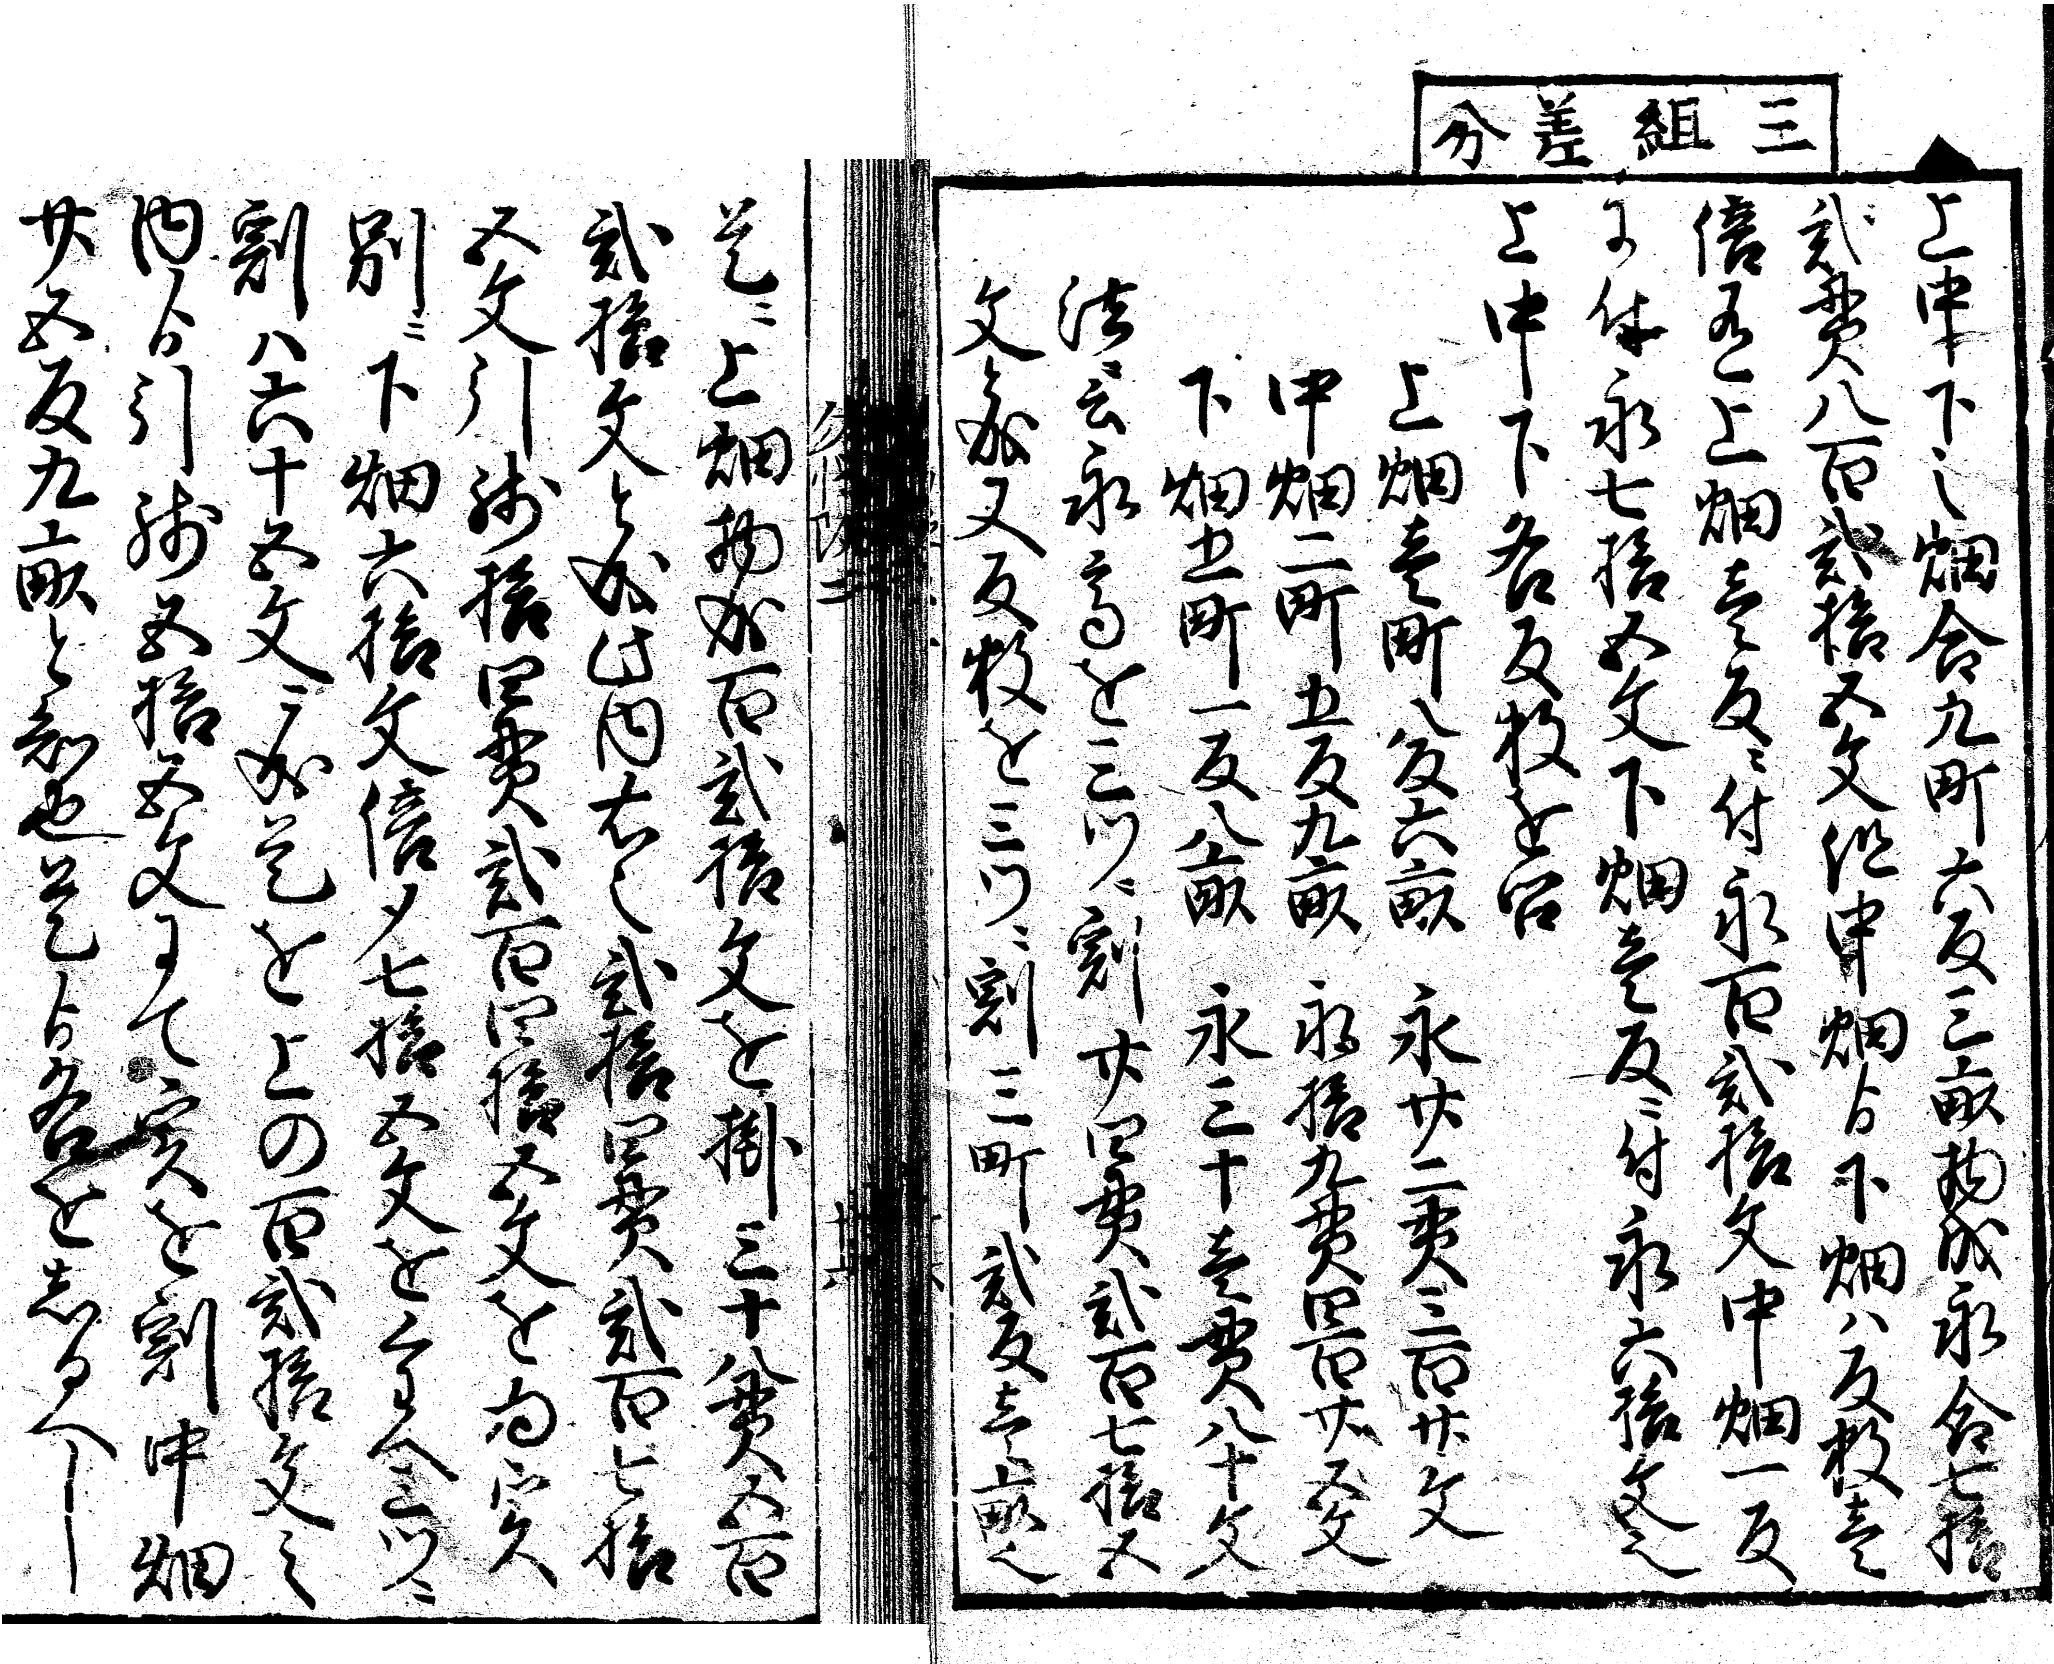 三組差分
上中下之畑合九町六反三畝物成永合七拾
弐貫八百弐拾五文但中畑ゟ下畑ハ反枚壱
倍有上畑壱反ニ付永百弐拾文中畑一反
に付永七拾五文下畑壱反ニ付永六拾文也
上中下各反枚を问
上畑壱町八反六畝 永廿二貫三百廿文
中畑二町五反九畝 永拾九貫四百廿五文
下畑五町一反八畝 永三十壱貫八十文
法ニ云永高を三ツニ割廿四貫弐百七拾五
文と成又反枚を三ツニ割三町弐反壱畝也
是ニ上畑物成百弐拾文を掛三十八貫五百
弐拾文と成此内右之弐拾四貫弐百七拾
五文引残拾四貫弐百四拾五文を為実
別ニ下畑六拾文倍〆七拾五文を加へ三ツニ
割ハ六十五文ニ成是を上の百弐拾文之
内ゟ引残五拾五文にて実を割中畑
廿五反九畝と知也是ゟ各をしるへし